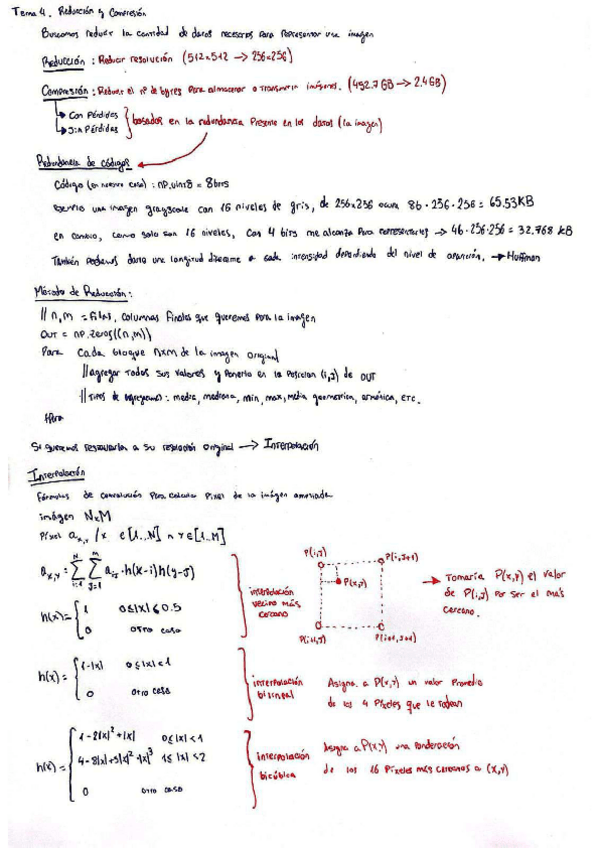 Tema 4. Reducción y Compresión
Buscamos reducir la cantidad de datos necesarios para representar una imagen
Reducción: Reducir resolución (512x512 → 256x256)
Compresión: Reducir el nº de bytes para almacenar o transmitir imágenes. (492.7GB → 2.4GB)
Con Pérdidas
Sin Pérdidas
basados en la redundancia presente en los datos (la imagen)
Redundancia de códigos
Código (en nuestro caso): np.uint8 = 8bits
Ejemplo una imagen grayscale con 16 niveles de gris, de 256x256 ocupa 8b·256·256 = 65.53KB
en cambio, como solo son 16 niveles, con 4 bits me alcanza para representarlos → 4b·256·256 = 32.768 KB
También podemos darle una longitud diferente a cada intensidad dependiendo del nivel de aparición. → Huffman
Método de Reducción:
// n,m = filas, columnas finales que queremos para la imagen
OUT = np.zeros((n,m))
Para cada bloque nxm de la imagen original
// agregar todos sus valores y ponerlo en la posicion (i,j) de OUT
// Tipos de agregaciones: media, mediana, min, max, media geometrica, armónica, etc.
fPara
Si queremos restaurarla a su resolución original → Interpolación
Interpolación
Fórmulas de convolución para calcular pixel de la imágen ampliada
imágen NxM
Píxel a_{x,y} / x ∈ [1..N] ∧ Y ∈ [1..M]
a_{x,y} = Σ_{i=1}^{N} Σ_{j=1}^{M} a_{ij}·h(x-i)h(y-j)
h(x) = { 1 0≤|x|≤0.5
0 otro caso
interpolación
vecino más
cercano
P(i,j)
P(i,j+1)
P(x,y)
P(i+1,j)
P(i+1,j+1)
→ Tomaría P(x,y) el valor
de P(i,j) por ser el más
cercano.
h(x) = { 1-|x| 0≤|x|<1
0 otro caso
interpolación
bilineal
Asigna a P(x,y) un valor promedio
de los 4 píxeles que le rodean
h(x) = { 1-2|x|²+|x|³ 0≤|x|<1
4-8|x|+5|x|²-|x|³ 1≤|x|<2
0 otro caso
interpolación
bicúbica
Asigna a P(x,y) una ponderación
de los 16 píxeles más cercanos a (x,y)